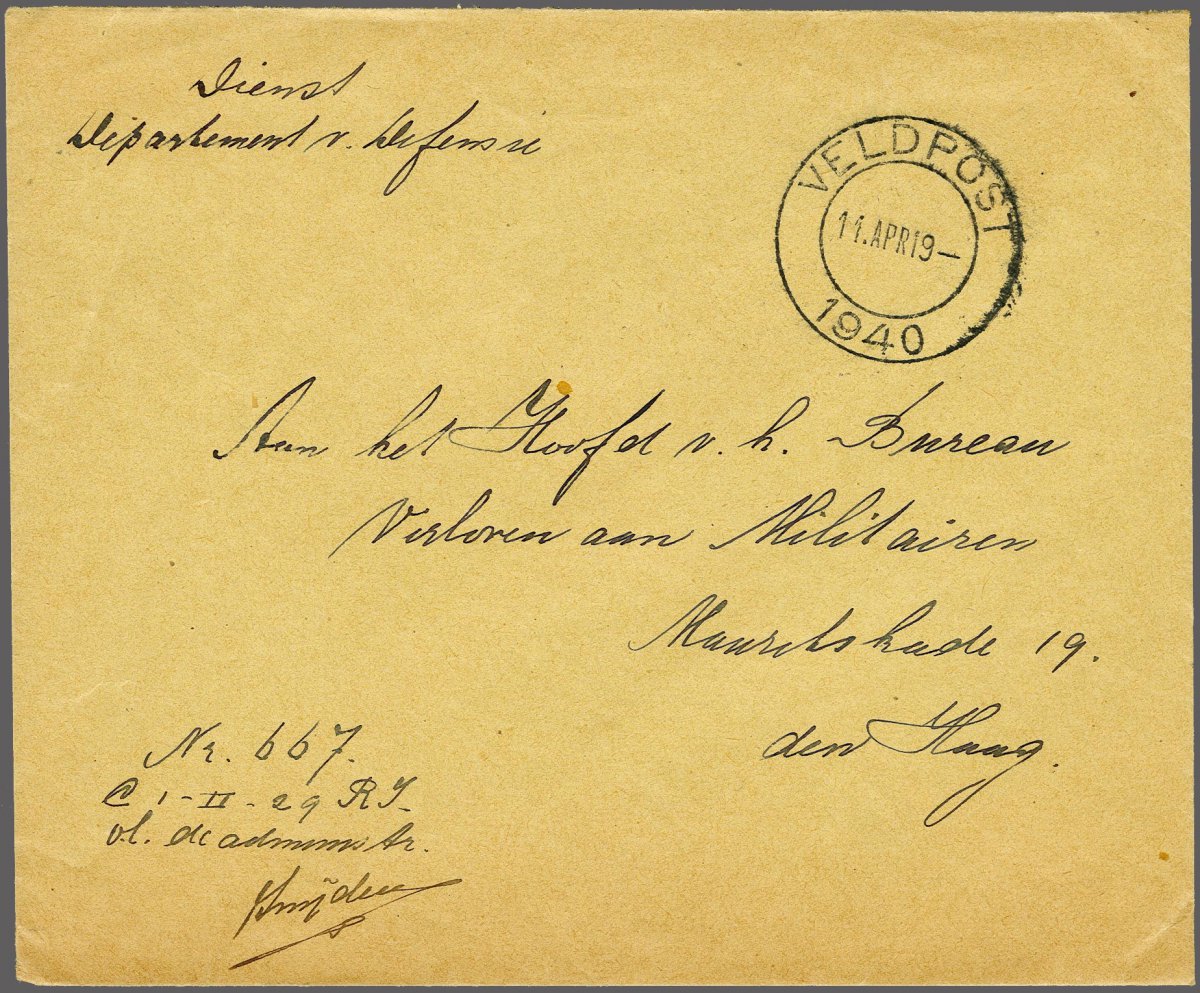 Dienst
Departement v. Defensie
VELDPOST
11.APR19-
1940
Aan het Hoofd v. h. Bureau
Verloven aan Militairen
Mauritskade 19.
den Haag.
Nr. 667.
C 1-II-29 RI
v.l. de administr.